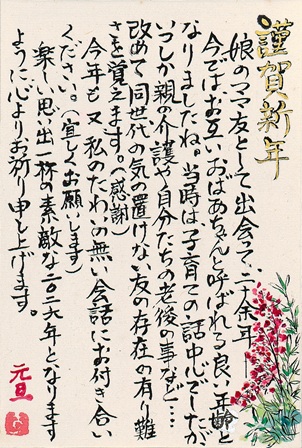 謹賀新年
娘のママ友として出会って、二十余年―
今ではお互いおばあちゃんと呼ばれる良い年齢と
なりましたね。当時は子育ての話中心でしたが
いつしか親の介護や自分たちの老後の事など…
改めて同世代の気の置けない友の存在の有り難
さを覚えます。(感謝)
今年も又私のたわいの無い会話にお付き合い
ください。(宜しくお願いします)
楽しい思い出一杯の素敵な二〇二九年となります
ように心よりお祈り申し上げます。
元旦